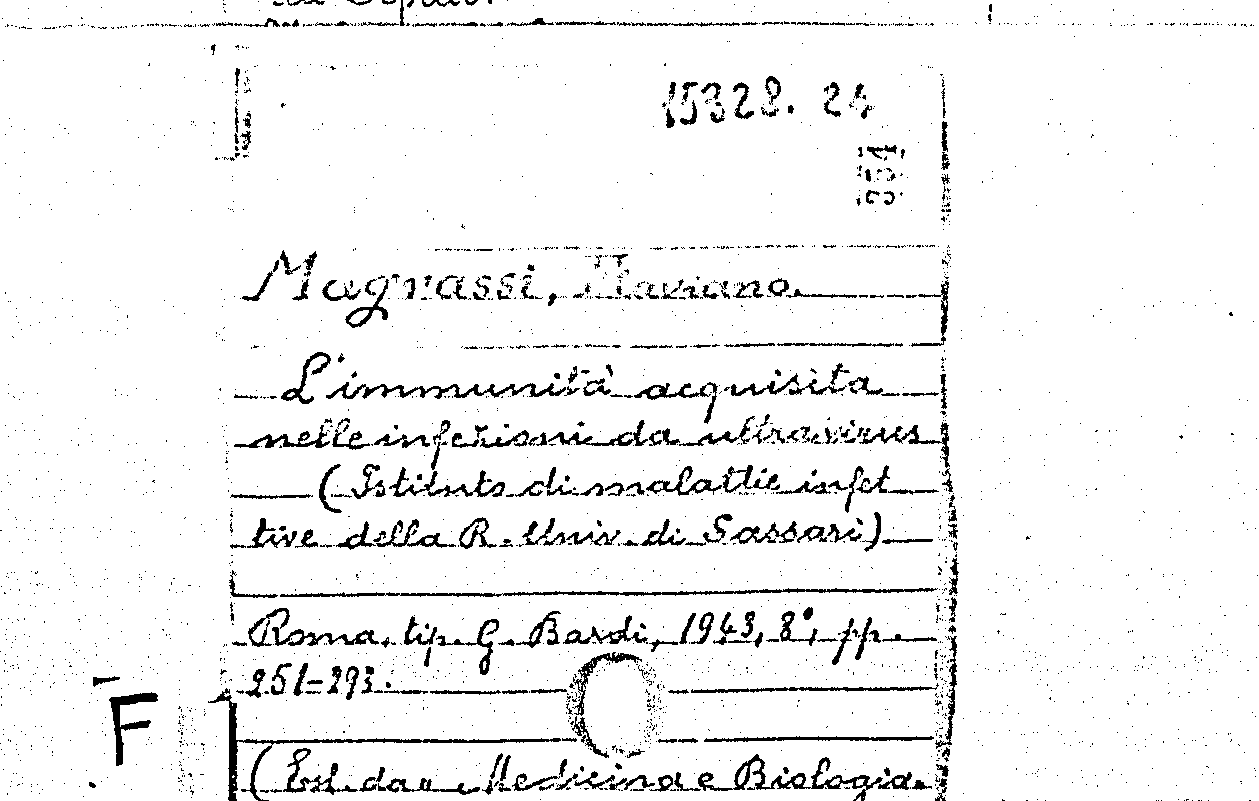 15328. 24
351
Magrassi, Flaviano.
L'immunità acquisita
nelle infezioni da ultravirus
(Istituto di malattie infet
tive della R. Univ. di Sassari)
Roma, tip. G. Bardi, 1943, 8°, pp.
251-293.
F
(Est. da "Medicina e Biologia.